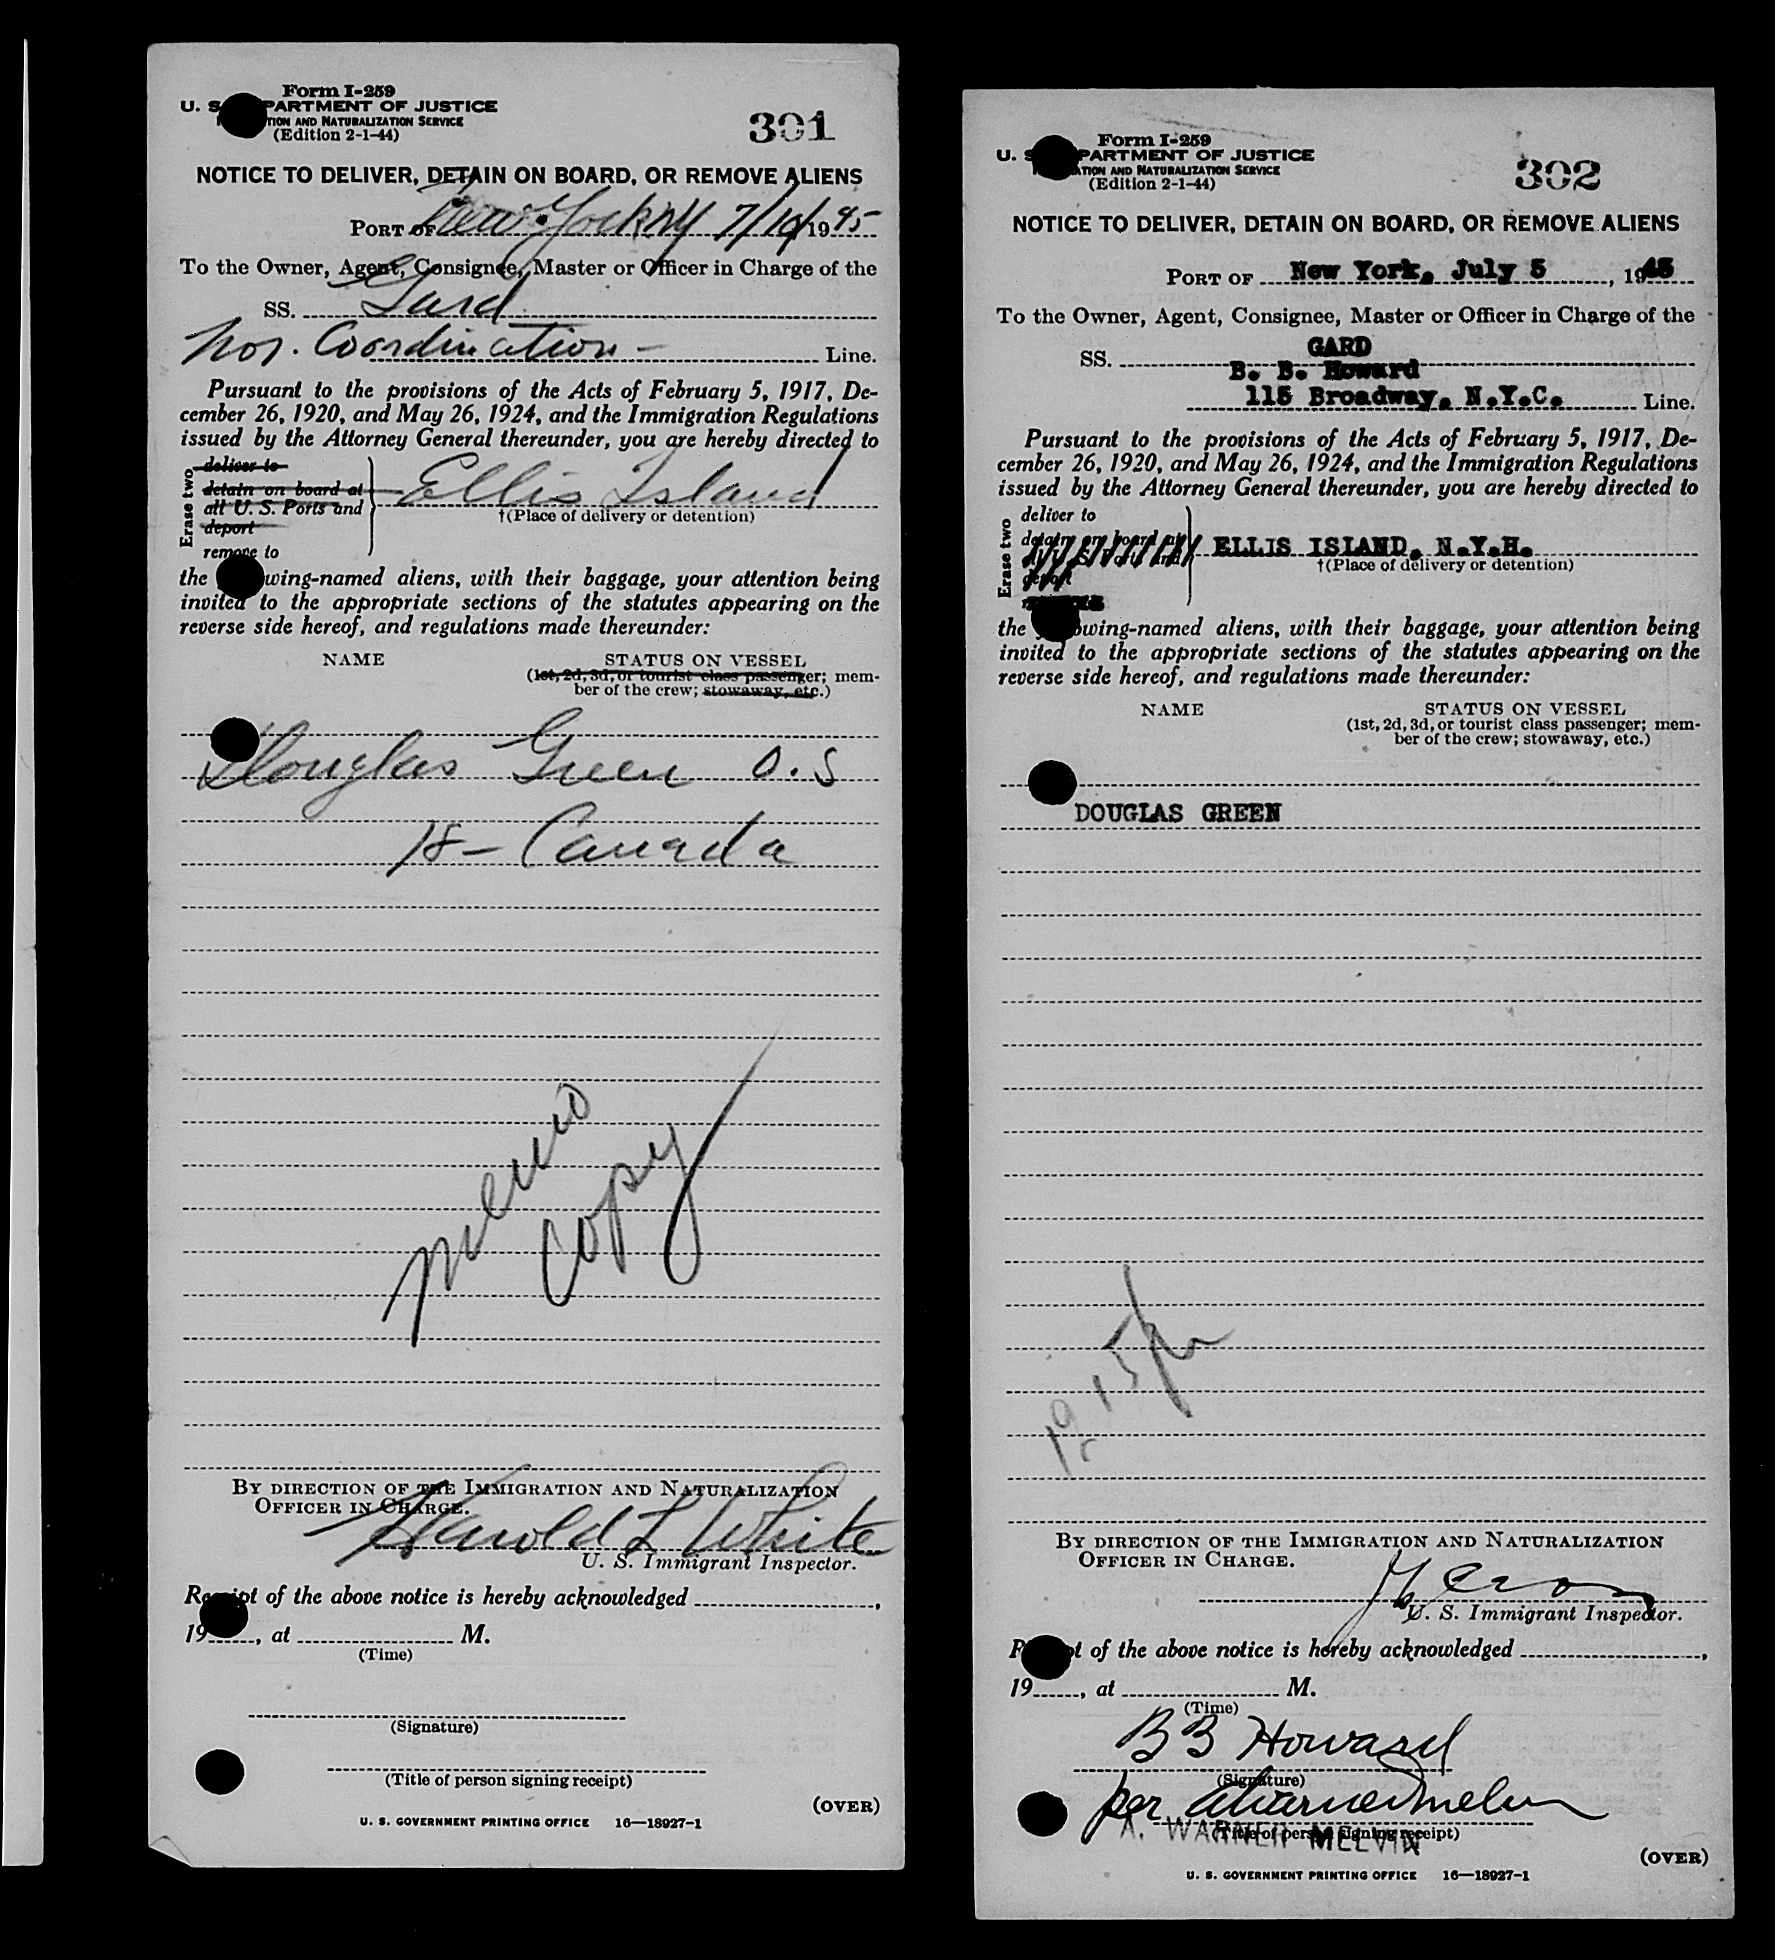 Form I-259
U. S. DEPARTMENT OF JUSTICE
TION AND NATURALIZATION SERVICE
(Edition 2-1-44)
301
NOTICE TO DELIVER, DETAIN ON BOARD, OR REMOVE ALIENS
PORT OF New York NY 7/10/1945
To the Owner, Agent, Consignee, Master or Officer in Charge of the
SS. Gard
Nor. Coordination - Line.
Pursuant to the provisions of the Acts of February 5, 1917, De-
cember 26, 1920, and May 26, 1924, and the Immigration Regulations
issued by the Attorney General thereunder, you are hereby directed to
Erase two
deliver to
detain on board at
all U. S. Ports and
deport
remove to
Ellis Island
†(Place of delivery or detention)
the following-named aliens, with their baggage, your attention being
invited to the appropriate sections of the statutes appearing on the
reverse side hereof, and regulations made thereunder:
NAME STATUS ON VESSEL
(1st, 2d, 3d, or tourist class passenger; mem-
ber of the crew; stowaway, etc.)
Douglas Green O.S
18- Canada
memo
copy
BY DIRECTION OF THE IMMIGRATION AND NATURALIZATION
OFFICER IN CHARGE.
Harold L White
U. S. Immigrant Inspector.
Receipt of the above notice is hereby acknowledged ,
19 , at M.
(Time)
(Signature)
(Title of person signing receipt)
(OVER)
U. S. GOVERNMENT PRINTING OFFICE 16—18927-1
Form I-259
U. S. DEPARTMENT OF JUSTICE
ATION AND NATURALIZATION SERVICE
(Edition 2-1-44)
302
NOTICE TO DELIVER, DETAIN ON BOARD, OR REMOVE ALIENS
PORT OF New York, July 5 , 1945
To the Owner, Agent, Consignee, Master or Officer in Charge of the
SS. GARD
B. B. Howard
115 Broadway, N.Y.C. Line.
Pursuant to the provisions of the Acts of February 5, 1917, De-
cember 26, 1920, and May 26, 1924, and the Immigration Regulations
issued by the Attorney General thereunder, you are hereby directed to
Erase two
deliver to
detain on board at
all U. S. Ports and
deport
ELLIS ISLAND, N.Y.H.
†(Place of delivery or detention)
the following-named aliens, with their baggage, your attention being
invited to the appropriate sections of the statutes appearing on the
reverse side hereof, and regulations made thereunder:
NAME STATUS ON VESSEL
(1st, 2d, 3d, or tourist class passenger; mem-
ber of the crew; stowaway, etc.)
DOUGLAS GREEN
12 15 pm
BY DIRECTION OF THE IMMIGRATION AND NATURALIZATION
OFFICER IN CHARGE.
U. S. Immigrant Inspector.
Receipt of the above notice is hereby acknowledged ,
19 , at M.
(Time)
B B Howard
(Signature)
per A Warner Melvin
A. WARNER MELVIN
(Title of person signing receipt)
(OVER)
U. S. GOVERNMENT PRINTING OFFICE 16—18927-1